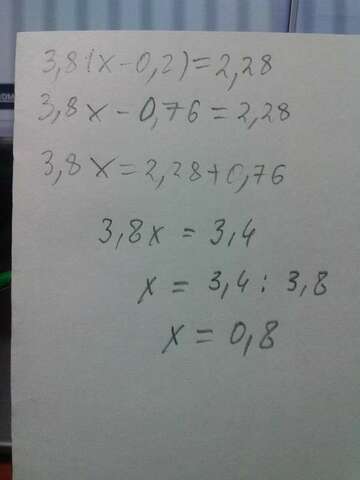 3,8(x-0,2)=2,28
3,8x-0,76=2,28
3,8x=2,28+0,76
3,8x=3,4
x=3,4:3,8
x=0,8